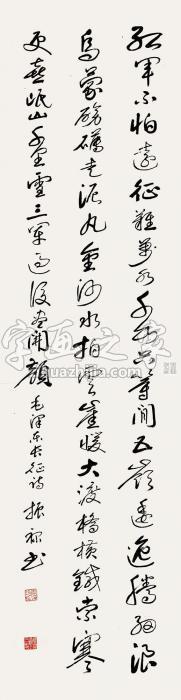 红军不怕远征难万水千山只等闲五岭逶迤腾细浪
乌蒙磅礴走泥丸金沙水拍云崖暖大渡桥横鐵索寒
更喜岷山千里雪三军过后尽開颜 毛泽东长征诗 振 书
字画之家